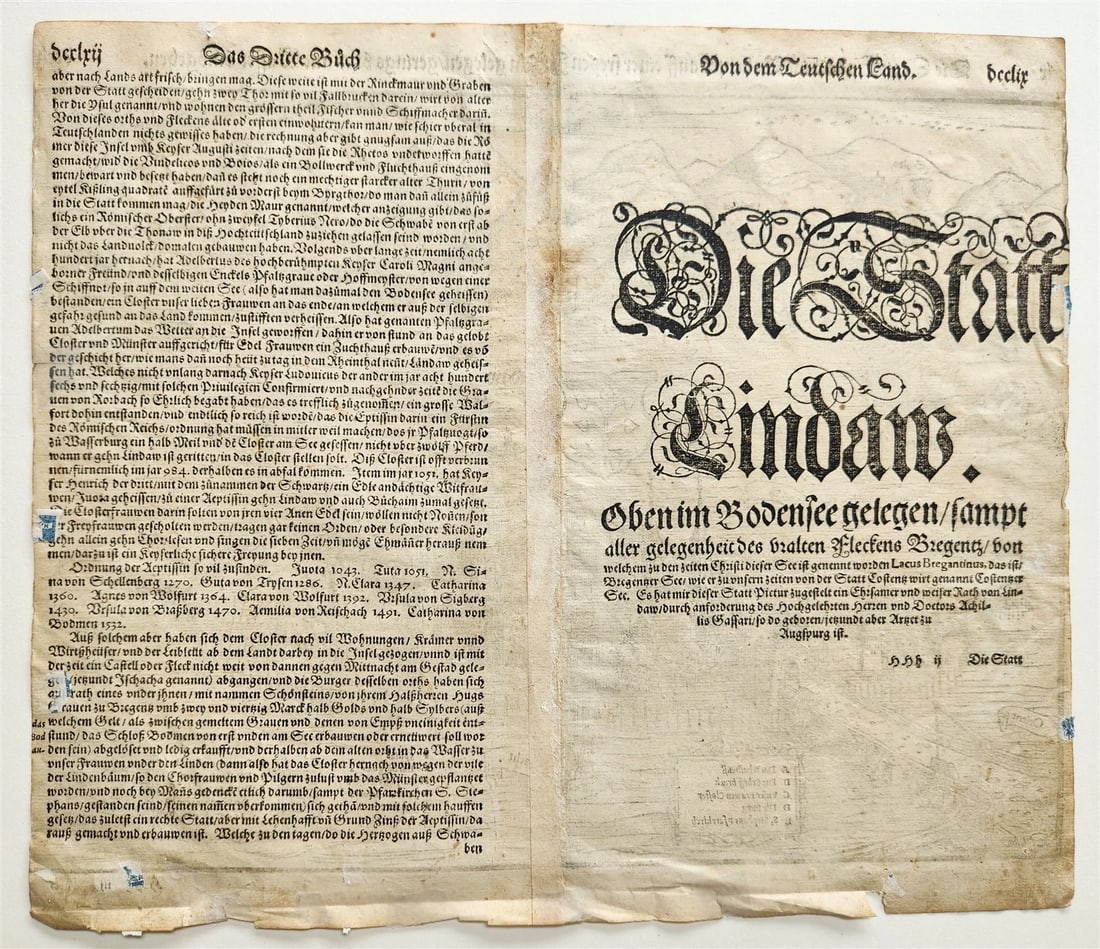 dcclxij Das Dritte Bůch
aber nach Lands art frisch/bringen mag. Diese weite ist mit der Rinckmaur vnd Graben
von der Statt gescheiden/gehn zwey Thor mit so vil Fallbrucken darein/wirt von alter
her die Ysul genannt/vnd wohnen den grössern theil Fischer vnnd Schiffmacher dariñ.
Von dieses orths vnd Fleckens älte od ersten einwonern/kan man/wie schier vberal in
Teutschlanden nichts gewisses haben/die rechnung aber gibt gnugsam auß/das die Rö
mer diese Insel vmb Keyser Augusti zeiten/nach dem sie die Rhetos vndetworffen hattē
gemacht/wid die Vindelicos vnd Boios/als ein Bollwerck vnd Fluchthauß eingenom
men/bewart vnd besetzt haben/dañ es steht noch ein mechtiger starcker alter Thurn/von
eytel Kißling quadratē auffgefürt zů vorderst beym Byrgthor/do man dañ allein zůfůß
in die Statt kommen mag/die Heyden Maur genannt/welcher anzeigung gibt/das so-
lichs ein Römischer Oberster/ohn zweyfel Tyberius Nero/do die Schwabē von erst ab
der Elb vber die Thonaw in diß Hochteutschland zůziehen gelassen seind worden/vnd
nicht das Landuolck/domalen gebauwen haben. Volgends vber lange zeit/nemlich acht
hundert jar hernach/hat Adelbertus des hochberühmpten Keyser Caroli Magni ange-
borner Freünd/vnd desselbigen Enckels Pfaltzgraue oder Hoffmeyster/von wegen einer
Schiffnot/so jn auff dem weiten See (also hat man dazůmal den Bodensee geheissen)
bestanden/ein Closter vnser lieben Frauwen an das ende/an welchem er auß der selbigen
gefahr gesund an das Land kommen/zustifften verheissen. Also hat genanten Pfaltzgra-
uen Adelbertum das Wetter an die Insel geworffen/dahin er von stund an das gelobt
Closter vnd Münster auffgericht/für Edel Frauwen ein Zuchthauß erbauwē/vnd es vō
der geschicht her/wie mans dañ noch heüt zů tag in dem Rheinthal neñt/Lindaw geheis-
sen hat. Welches nicht vnlang darnach Keyser Ludouicus der ander im jar acht hundert
sechs vnd sechtzig/mit solchen Priuilegien Confirmiert/vnd nachgehnder zeitē die Gra-
uen von Rorbach so Ehrlich begabt haben/das es trefflich zůgenoñen/ein grosse Wal-
fort dohin entstanden/vnd endtlich so reich ist wordē/das die Eptissin darin ein Fürstin
des Römischen Reichs/ordnung hat müssen in mitler weil machen/dos jr Pfaltzuogt/so
zů Wasserburg ein halb Meil vnd dē Closter am See gesessen/nicht vber zwölff Pferd/
wann er gehn Lindaw ist geritten/in das Closter stellen solt. Diß Closter ist offt verbrun
nen/fürnemlich im jar 984. derhalben es in abfal kommen. Item im jar 1051. hat Key-
ser Henrich der dritt/mit dem zůnammen der Schwartz/ein Edle andächtige Witfrau-
wen/Juota geheissen/zů einer Aeptissin gehn Lindaw vnd auch Bůchaw zumal gesetzt.
Die Closterfrauwen darin solten von jren vier Anen Edel sein/wöllen nicht Noñen/son
der Freyfrauwen gescholten werden/tragen gar keinen Orden/oder besondere Kleidūg/
gehn allein gehn Chor/lesen vnd singen die sieben Zeit/vñ mögē Ehmäñer herauß nem
men/darzů ist ein Keyserliche sichere Freyung bey jnen.
Ordnung der Aeptissin so vil zůfinden. Juota 1043. Tuta 1051. N. Si
na von Schellenberg 1270. Guta von Trysen 1286. N. Clara 1347. Catharina
1360. Agnes von Wolfurt 1364. Clara von Wolfurt 1392. Vrsula von Sigberg
1430. Vrsula von Praßberg 1470. Aemilia von Reischach 1491. Catharina von
Bodmen 1532.
Auß solchem aber haben sich dem Closter nach vil Wohnungen/Krämer vnnd
Wirtßheüser/vnd der Leiblētt ab dem Land darbey in die Insel gezogen/vnnd ist mit
der zeit ein Castell oder Fleck nicht weit von dannen gegen Mittnacht am Gestad gele-
gen/jetzundt Ischacha genannt) abgangen/vnd die Burger desselben orths haben sich
auß rath eines vnder jhnen/mit nammen Schönsteins/von jhrem Halßherren Hugs
Grauen zu Bregentz vmb zwey vnd viertzig Marck halb Golds vnd halb Sylbers (auß
welchem Gelt/als zwischen gemelten Grauen vnd denen von Empß vneinigkeit ent-
stund/das Schloß Bodmen von erst vnden am See erbauwen oder ernetwert soll wor
den sein) abgelöset vnd ledig erkaufft/vnd derhalben ab dem alten orht in das Wasser zů
vnser Frauwen vnder den Linden (dann also hat das Closter hernach von wegen der vile
der Lindenbäum/so den Chorfrauwen vnd Pilgern zulust vmb das Münster gepflantzet
worden/vnd noch bey Mañs gedenckē etlich darumb/sampt der Pfarrkirchen S. Ste-
phans/gestanden seind/seinen nam̄en vberkommen) sich gethā/vnd mit solchem hauffen
gesetzt/das zuletst ein rechte Statt/aber mit Lehenhafft vñ Grund Zinß der Aeptissin/da
rauß gemacht vnd erbauwen ist. Welche zu den tagen/do die Hertzogen auß Schwa-
ben
Von dem Teutschen Land. dcclix
Die Statt
Lindaw.
Oben im Bodensee gelegen/sampt
aller gelegenheit des vralten Fleckens Bregentz/von
welchem zu den zeiten Christi dieser See ist genennt worden Lacus Bregantinus, das ist/
Bregentzer See/wie er zu vnsern zeiten von der Statt Costentz wirt genannt Costentzer
See. Es hat mir dieser Statt Pictur zugestelt ein Ehrsamer vnd weiser Rath von Lin-
daw/durch anforderung des Hochgelehrten Herren vnd Doctors Achil-
lis Gassari/so do geboren/jetzundt aber Artzet zu
Augspurg ist.
HHh ij Die Statt